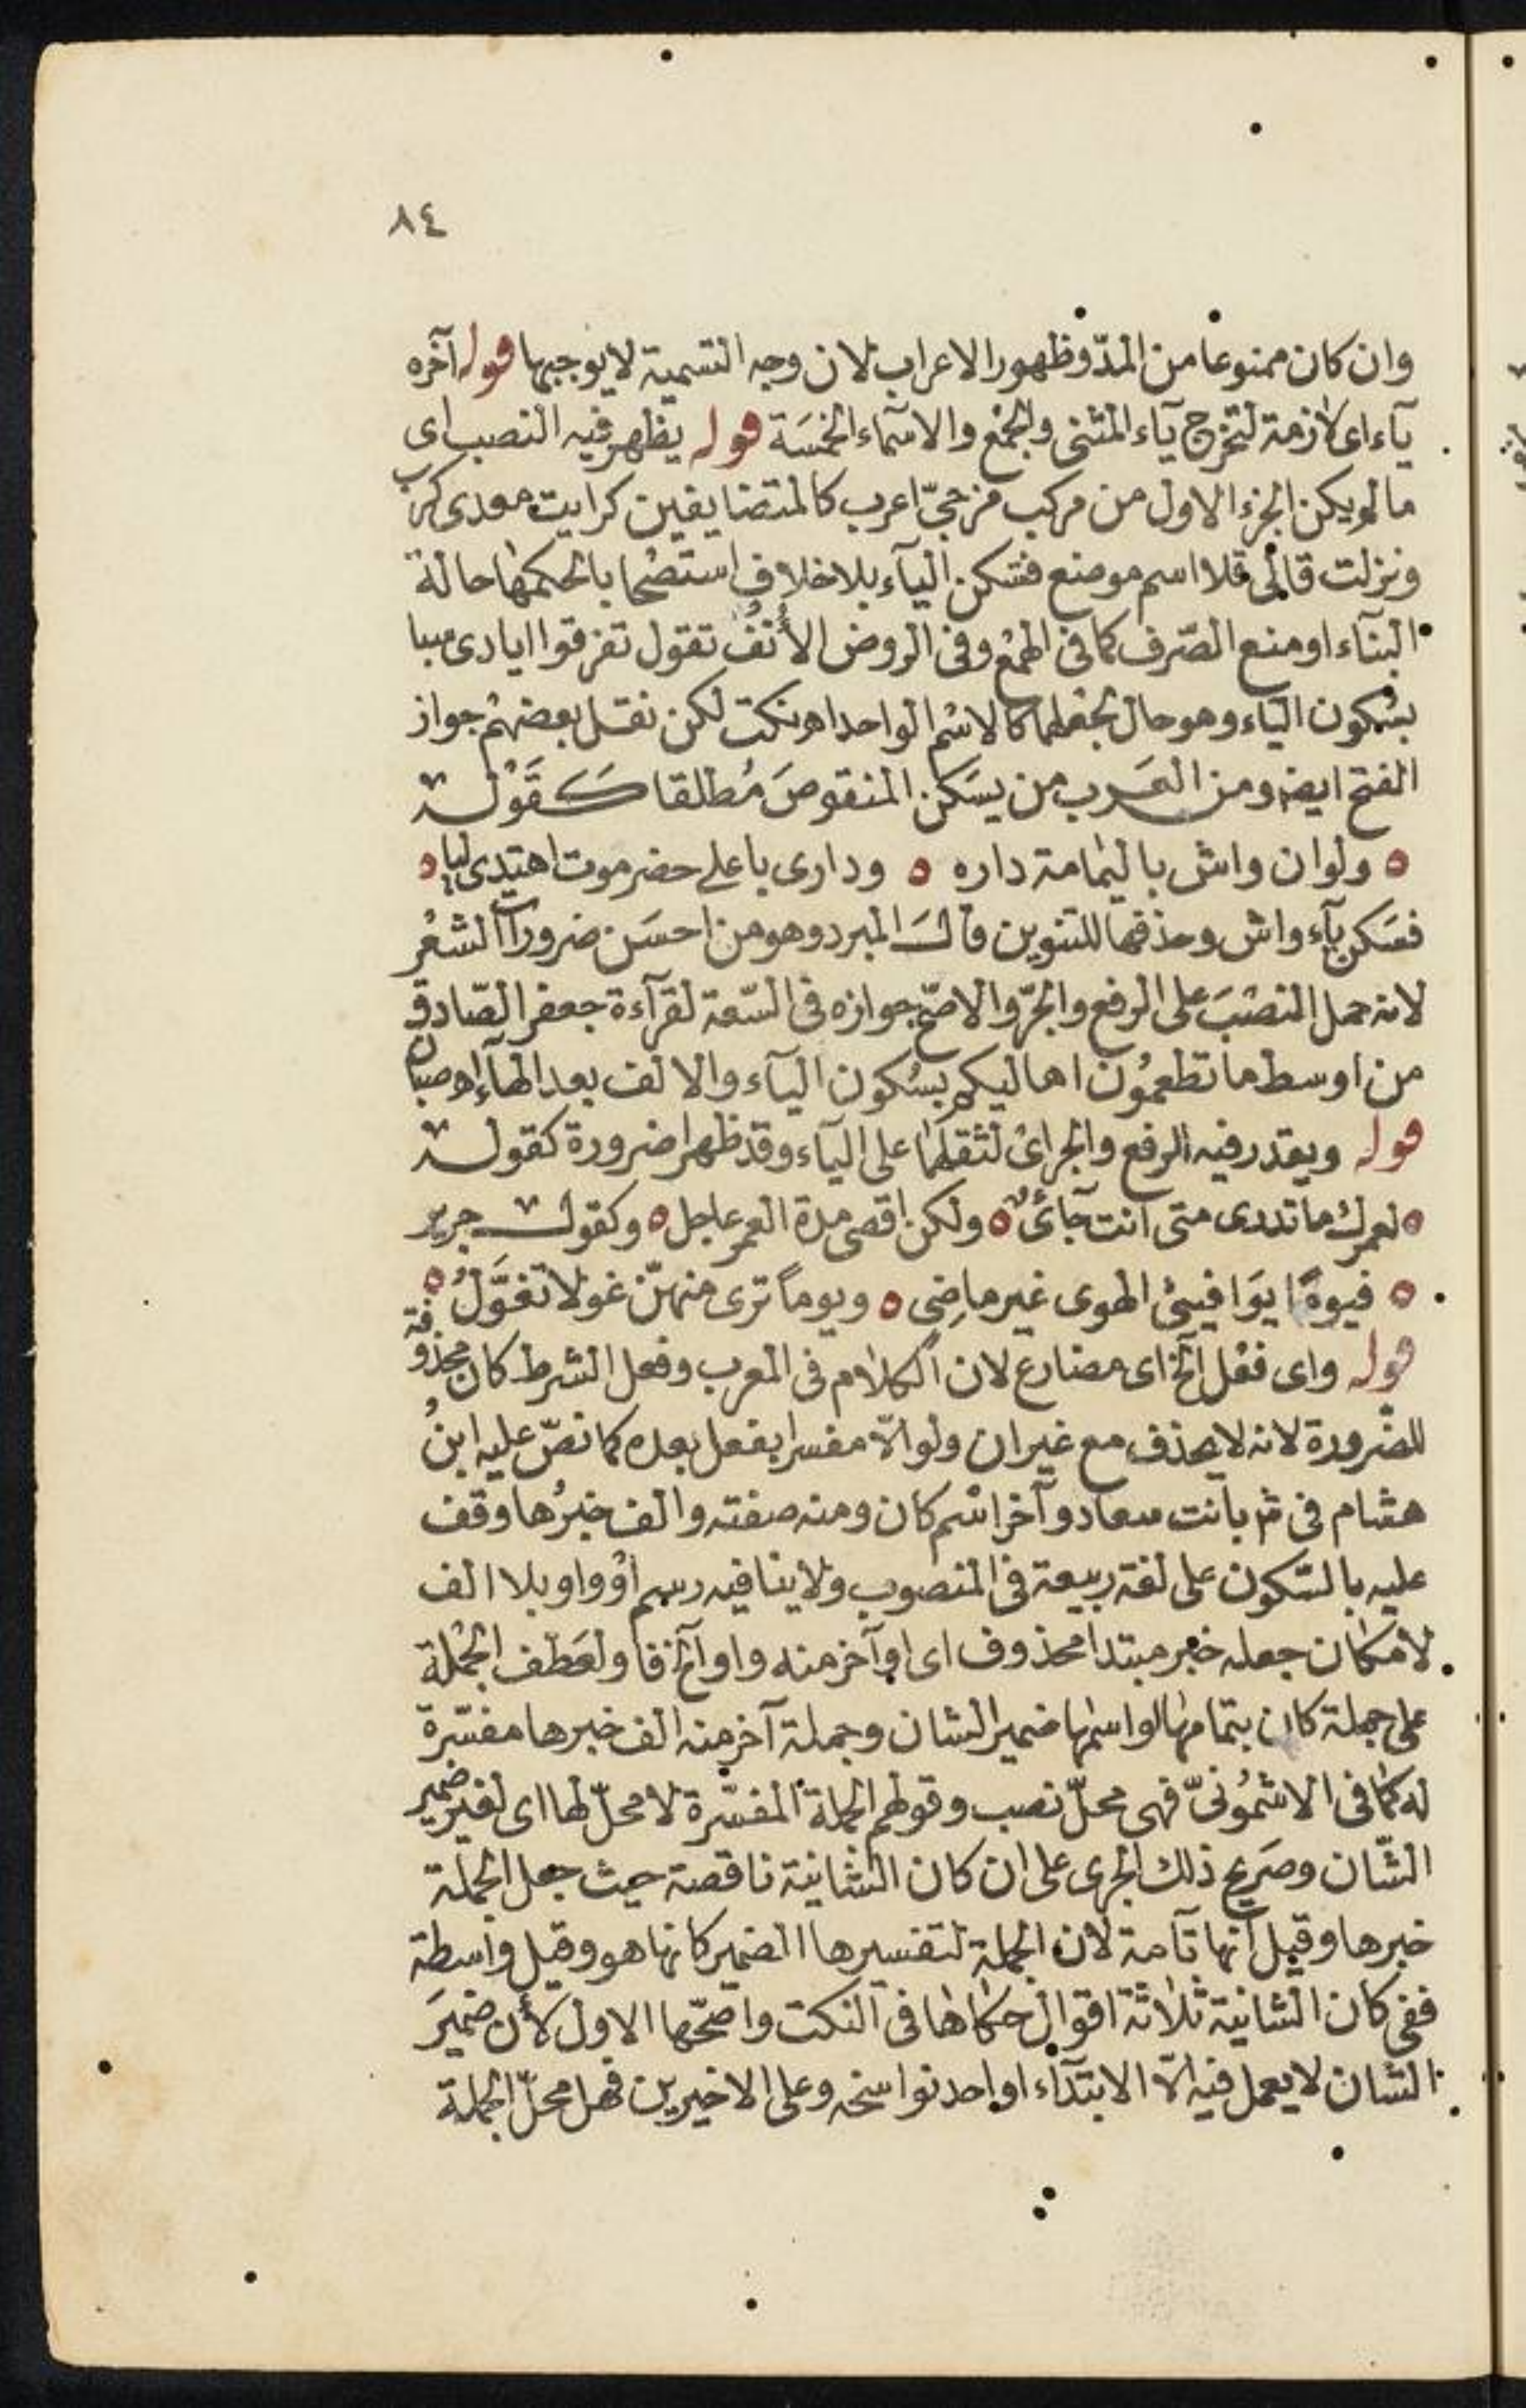 ٨٤
وان كان ممنوعا من المدّ وظهور الاعراب لان وجه التسمية لا يوجبها قوله آخره
يآء اى لازمة لتخرج يآء المثنى والجمع والاسمآء الخمسَة قوله يظهر فيه النصب اى
ما لم يكن الجزء الاول من مركب مزجىّ اعرب كالمتضايفين كرايت معدى كرب
ونزلت قالى قلا اسم موضع فتسكن اليآء بلا خلاف استصحابا لحكمها حالة
البنآء او منع الصّرف كما فى الهمع وفى الروض الأُنُفُ تقول تفرقوا ايادى سبا
بسُكون الياء وهو حال لجعلهما كالاسْم الواحد اهـ نكت لكن نقل بعضهُم جواز
الفتح ايضا ومن العَرب من يسَكن المنقوصَ مُطلقا كَقَوْله
ه ولو ان واش باليمامة داره ه ودارى باعلى حضر موت اهتدى ليا ه
فسَكن يآء واش وحذفها للتنوين قالَ المبرد وهو من احسَن ضرورات الشعْر
لانه حمل النصْبَ على الرفع والجرّ والاصّح جوازه فى السّعة لقرآءة جعفر الصّادق
من اوسط ما تطعمُون اهاليكم بسُكون اليآء والالف بعد الهآء اهـ صبان
قوله ويقدر فيه الرفع والجر اىْ لثقلهما على اليآء وقد ظهرا ضرورة كقوله
ه لعمرك ما تدرى متى انت جآئىٌ ه ولكن اقصى مدة العمر عاجل ه وكقول جرير
ه فيومًا يوَافينىْ الهوى غير ماضِىٍ ه ويوماً ترى منهنّ غولا تغوَّلُ ه
قوله واى فعْل الخ اى مضارع لان الكلام فى المعرب وفعل الشرط كان محذوفة
للضّرورة لانه لا يحذف مع غير ان ولو الاّ مفسرا بفعل بعده كما نصّ عليه ابنُ
هشام فى ش بانت سعاد وآخر اسْم كان ومنه صفته والف خبرُها وقف
عليه بالسّكون على لغة ربيعة فى المنصوب ولا ينافيه رسم اوْ واو بلا الف
لامكان جعله خبر مبتدا محذوف اى او آخر منه واو الخ فاو لعَطف الجمْلة
على جملة كان بتمامها او اسمها ضمير الشان وجملة آخر منه الف خبرها مفسّرة
له كما فى الاشمُونىّ فهى محلّ نصب وقولهم الجملة المفسّرة لا محلّ لها اى لغير ضمير
الشّان وصَريح ذلك الجرى على ان كان الشانية ناقصة حيث جعل الجملة
خبرها وقيل انها تآمة لان الجملة لتفسيرها الضمير كانها هو وقيل واسطة
ففى كان الشانية ثلاثة اقوال حكاها فى النكت واصحّها الاول لأن ضميرَ
الشان لا يعمل فيه الاّ الابتدآء او احد نواسخه وعلى الاخيرين فهل محلّ الجملة